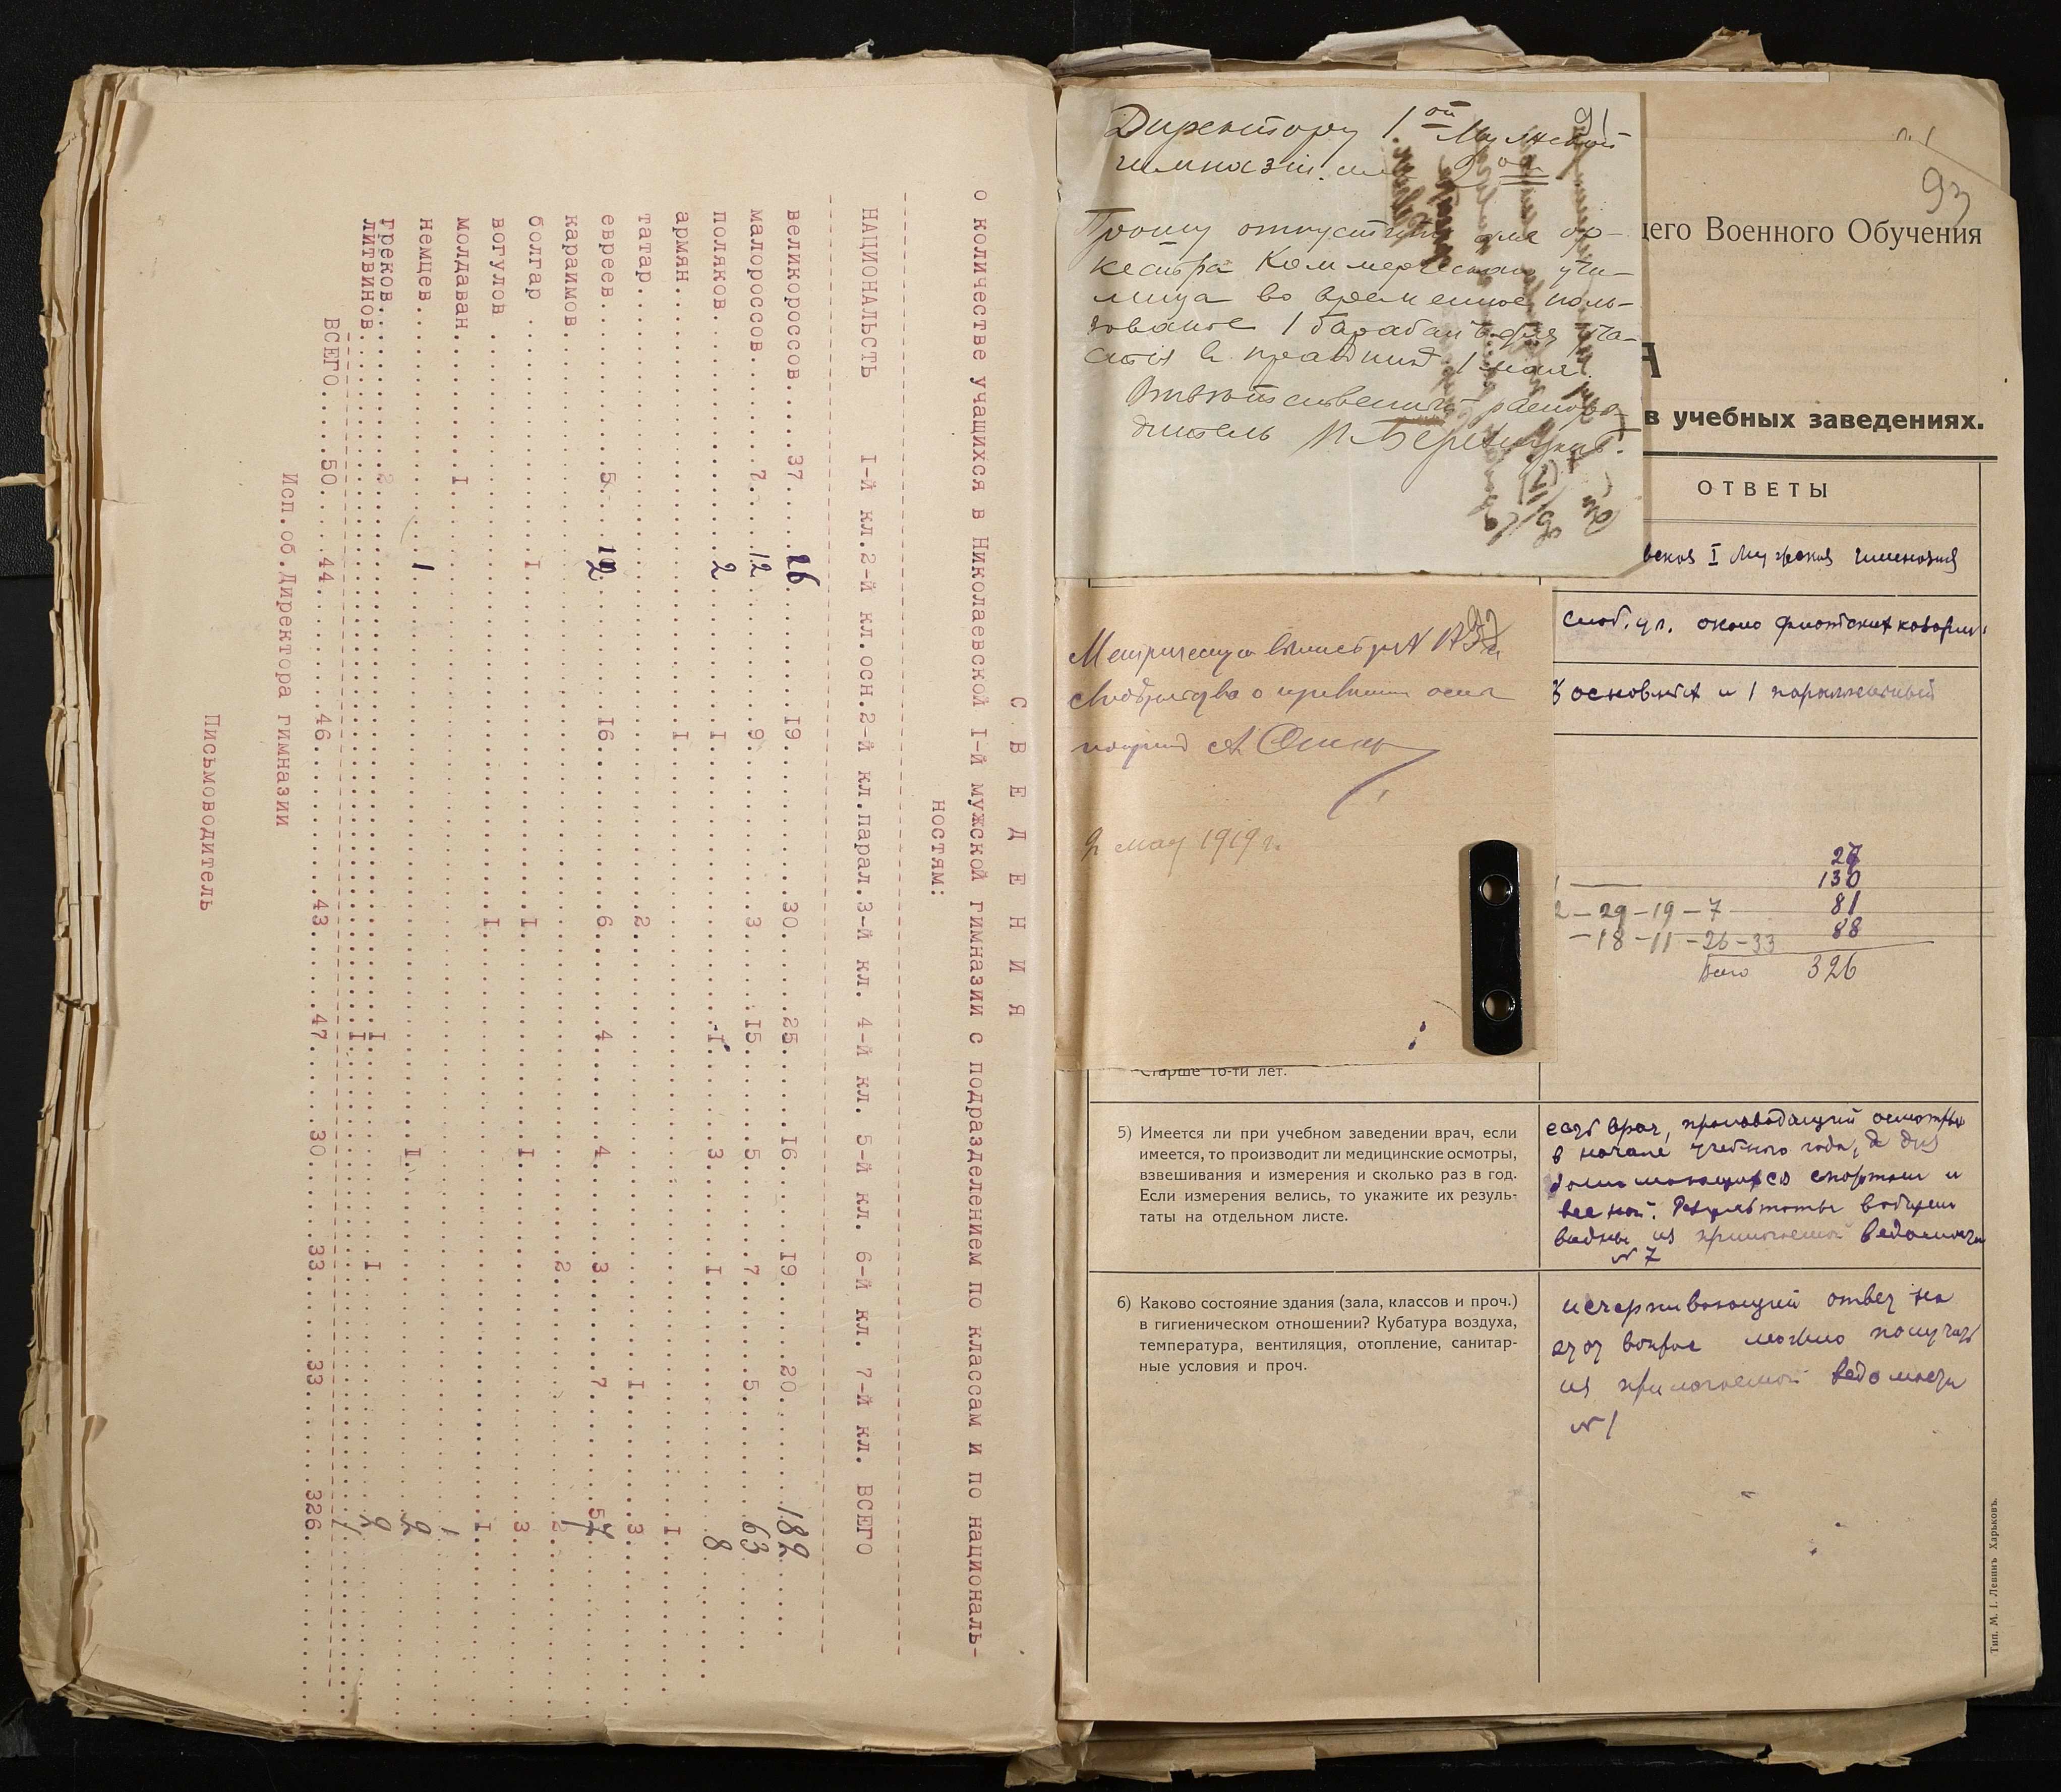 С В Е Д Е Н И Я
о количестве учащихся в Николаевской I-й мужской гимназии с подразделением по классам и по националь-
ностям:
НАЦИОНАЛЬСТЬ I-й кл. 2-й кл.осн. 2-й кл.парал. 3-й кл. 4-й кл. 5-й кл. 6-й кл. 7-й кл. ВСЕГО
великороссов 37 26 19 30 25 16 19 20 182
малороссов 7 12 9 3 15 5 7 5 63
поляков 2 I I 3 I 8
армян I I
татар 2 I 3
евреев 5 16 6 4 4 3 7
караимов 2 2
болгар I I I 3
вогулов I I
молдаван I 1
немцев 1 I 2
греков I I 2
литвинов I 1
ВСЕГО 50 44 46 43 47 30 33 33 326
Исп.об.Директора гимназии
Письмоводитель
91
Директору 1ой Мужской
гимназiи
Прошу отпустить для ор-
кестра Коммерческого учи-
лища во временное поль-
зование 1 барабан для уча-
стiя в праздник 1 мая.
Ответственный распоря-
дитель
92
Метрическую выпись
свидетельство о привитии оспы
получил А.
2 мая 1919 г.
93
щего Военного Обучения
А
в учебных заведениях.
ОТВЕТЫ
вская I Мужская гимназия
Слоб. ул. около флотских казарм
основных и 1 параллельный
27
130
2 – 29 – 19 – 7 81
– 18 – 11 – 26 – 33 88
Всего 326
Старше 16-ти лет.
5) Имеется ли при учебном заведении врач, если
имеется, то производит ли медицинские осмотры,
взвешивания и измерения и сколько раз в год.
Если измерения велись, то укажите их резуль-
таты на отдельном листе.
есть врач, производящий осмотры
в начале учебного года, а для
занимающихся спортом и
весной. Результаты
видны из прилагаемой ведомости
№ 7
6) Каково состояние здания (зала, классов и проч.)
в гигиеническом отношении? Кубатура воздуха,
температура, вентиляция, отопление, санитар-
ные условия и проч.
исчерпывающий ответ на
этот вопрос можно получить
из прилагаемой ведомости
№ 1
Тип. М. I. Левинъ Харьковъ.